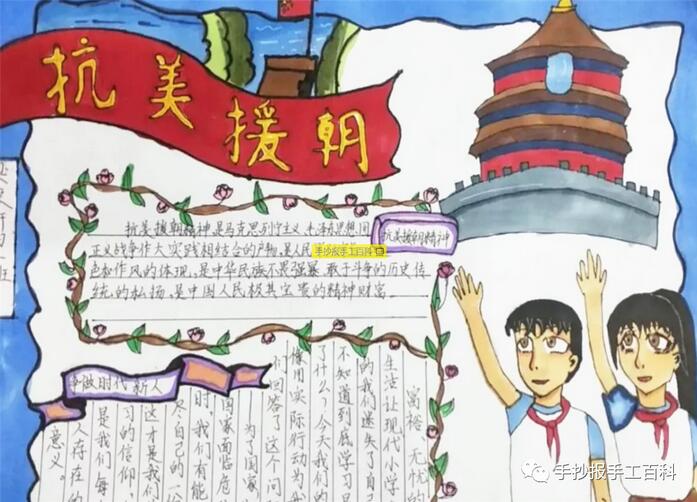 抗美援朝
抗美援朝精神是马克思列宁主义、毛泽东思想同
正义战争伟大实践相结合的产物,是人民
手抄报手工百科
抗美援朝精神
色和作风的体现,是中华民族不畏强暴、敢于斗争的历史传
统的弘扬,是中国人民极其宝贵的精神财富。
争做时代新人
富裕、无忧的
生活让现代小学
的我们迷失了自
不知道到底学习是
了什么?今天我们的
像用实际行动为我
们回答了这个问
——为了国家
国家面临危
时,我们有能
尽自己的一
这才是我们
习的信仰,
是我们每
人存在的
意义。
手抄报手工百科